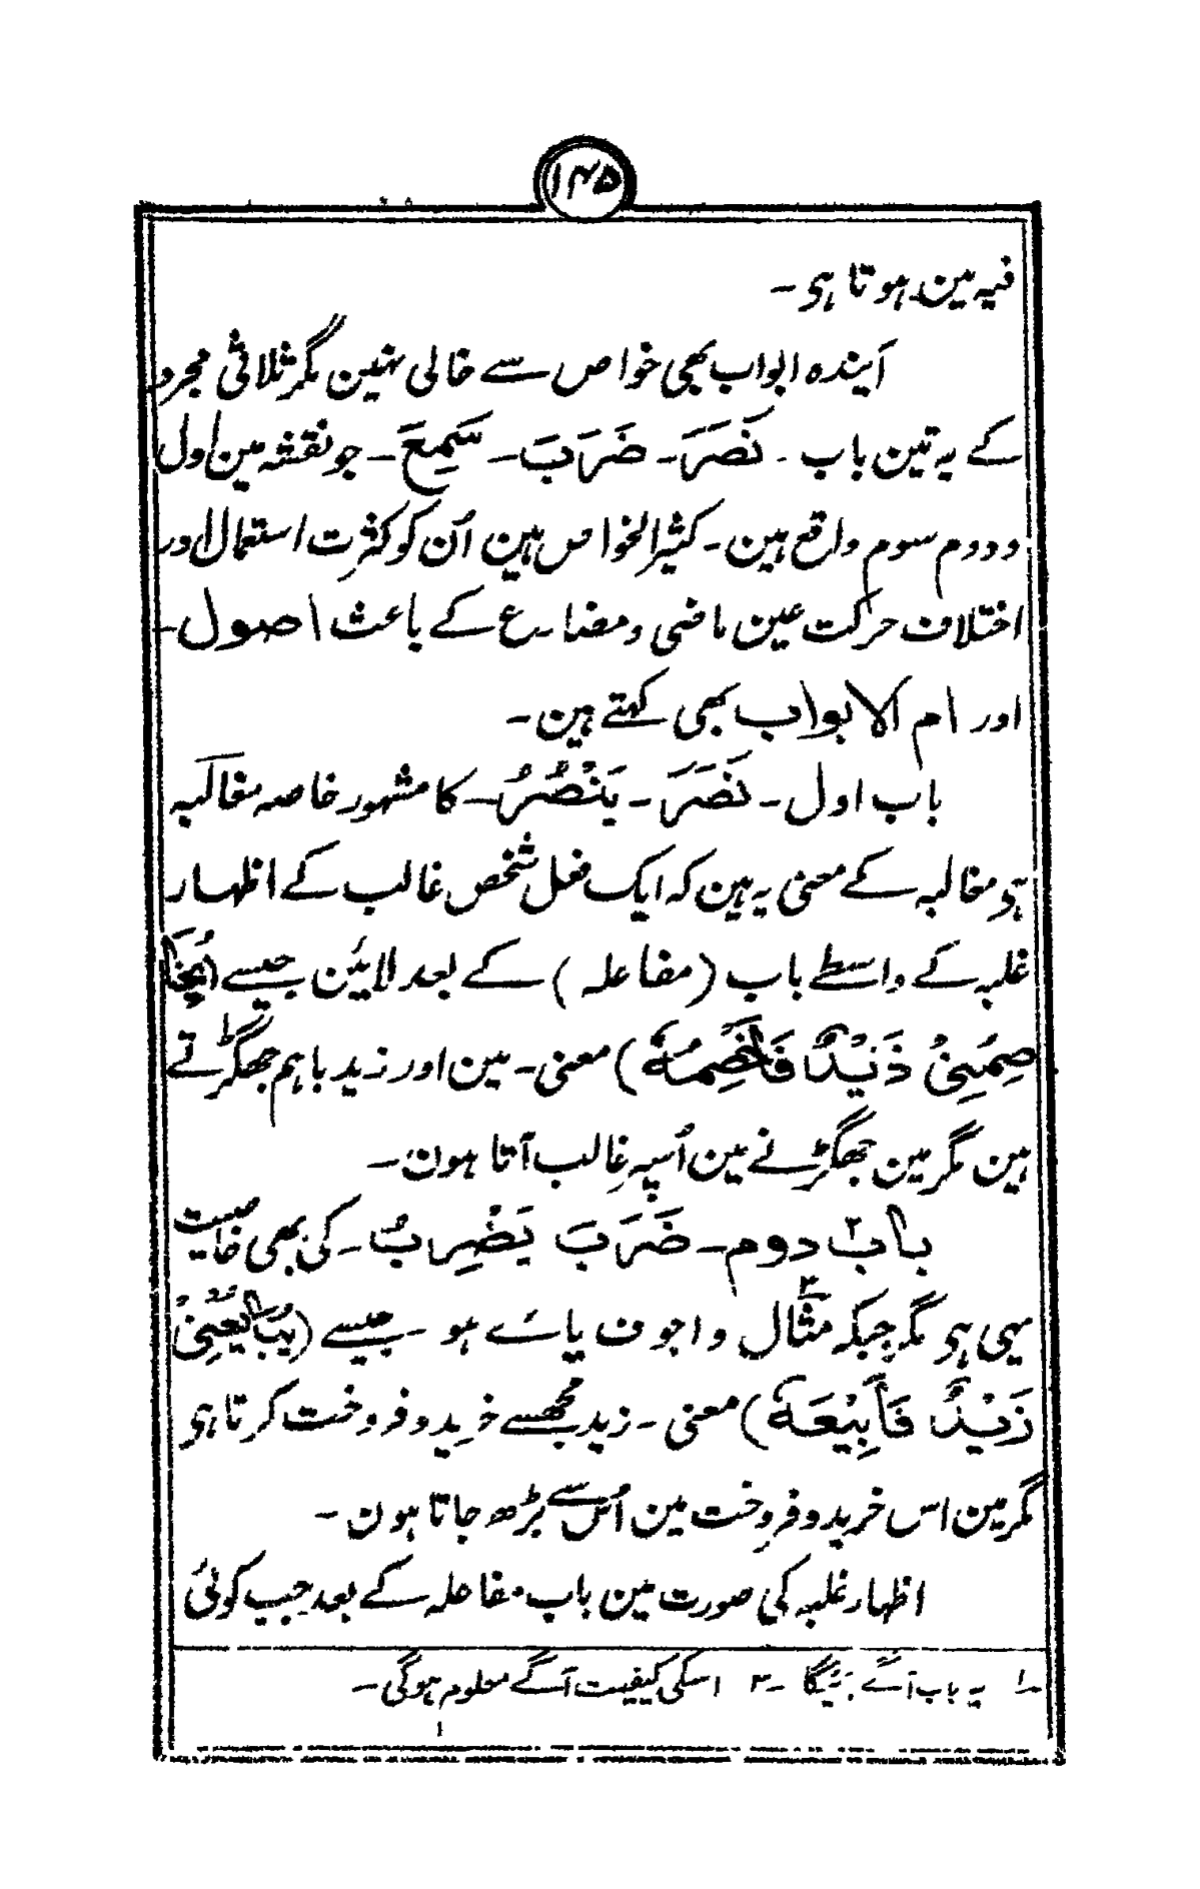 ۱۴۵
فیہ مین ہوتا ہی۔
آیندہ ابواب بھی خواص سے خالی نہین مگر ثلاثی مجرد
کے یہ تین باب ۔ نَصَرَ۔ ضَرَبَ۔ سَمِعَ۔ جو نقشہ مین اول
ودوم سوم واقع ہین۔ کثیر الخواص ہین اُن کو کثرت استعمال اور
اختلاف حرکت عین ماضی ومضارع کے باعث اصول۔
اور ام الابواب بھی کہتے ہین۔
باب اول۔ نَصَرَ۔ یَنْصُرُ۔ کا مشہور خاصہ مغالبہ
ہی مغالبہ کے معنی یہ ہین کہ ایک فعل شخص غالب کے اظہار
غلبہ کے واسطے باب (مفاعلہ) کے بعد لائین جیسے (یُخَا
صِمُنِیْ زَیْدٌ فَاَخْصِمُہٗ) معنی۔ مین اور زید باہم جھگڑتے
ہین مگر مین جھگڑنے مین اُسپہ غالب آتا ہون۔
باب دوم۔ ضَرَبَ یَضْرِبُ۔ کی بھی خاصیت
یہی ہی مگر جبکہ مثال ۲ واجوف یائے ہو۔ جیسے (یُبَایِعُنِیْ
زَیْدٌ فَاَبِیْعَہٗ) معنی۔ زید مجھسے خرید وفروخت کرتا ہی
مگر مین اس خرید وفروخت مین اُس سے بڑھ جاتا ہون۔
اظہار غلبہ کی صورت مین باب مفاعلہ کے بعد جب کوئی
۱۔ یہ باب آگے ۲۔ اسکی کیفیت آگے معلوم ہوگی۔